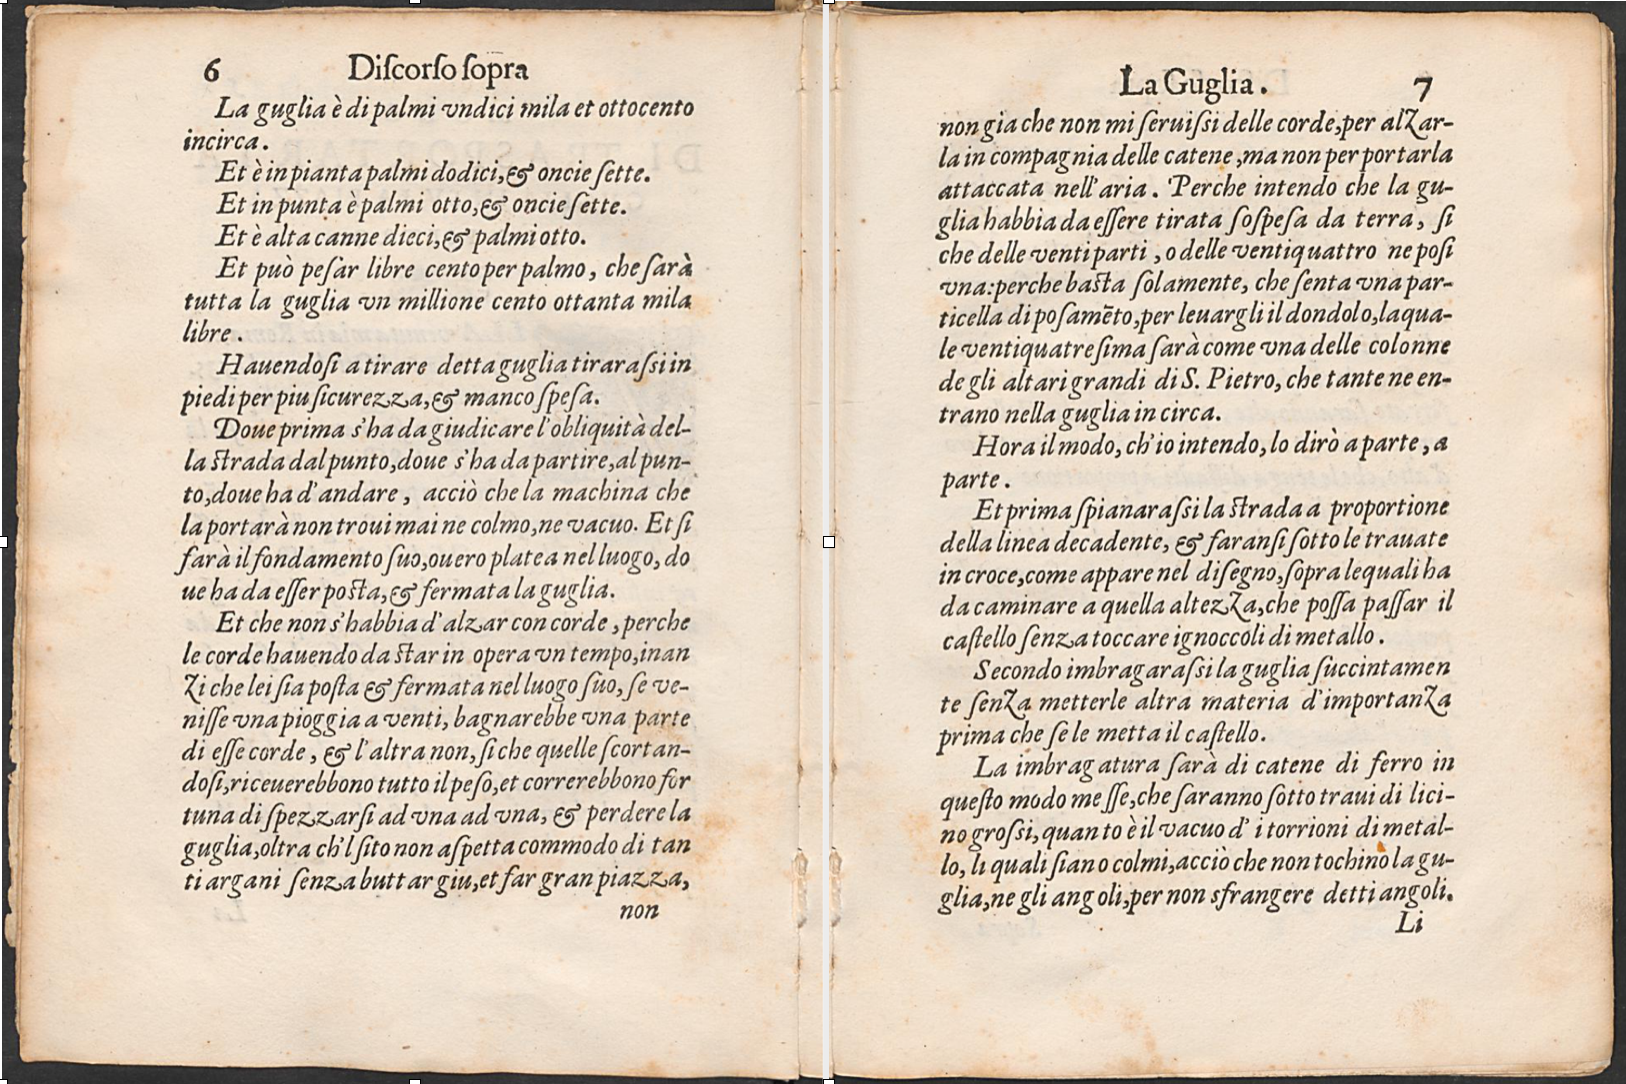 6 Diſcorſo ſopra
La guglia è di palmi vndici mila et ottocento
incirca.
Et è in pianta palmi dodici, & oncie ſette.
Et in punta è palmi otto, & oncie ſette.
Et è alta canne dieci, & palmi otto.
Et può peſar libre cento per palmo, che ſarà
tutta la guglia vn millione cento ottanta mila
libre.
Hauendoſi a tirare detta guglia tiraraſsi in
piedi per piu ſicurezza, & manco ſpeſa.
Doue prima s'ha da giudicare l'obliquità del-
la ſtrada dal punto, doue s'ha da partire, al pun-
to, doue ha d'andare, acciò che la machina che
la portarà non troui mai ne colmo, ne vacuo. Et ſi
farà il fondamento ſuo, ouero platea nel luogo, do
ue ha da eſſer poſta, & fermata la guglia.
Et che non s'habbia d'alzar con corde, perche
le corde hauendo da ſtar in opera vn tempo, inan
zi che lei ſia poſta & fermata nel luogo ſuo, ſe ve-
niſſe vna pioggia a venti, bagnarebbe vna parte
di eſſe corde, & l'altra non, ſi che quelle ſcortan-
doſi, riceuerebbono tutto il peſo, et correrebbono for
tuna di ſpezzarſi ad vna ad vna, & perdere la
guglia, oltra ch'l ſito non aſpetta commodo di tan
ti argani ſenza buttar giu, et far gran piazza,
non
La Guglia. 7
non gia che non mi ſeruiſsi delle corde, per alzar-
la in compagnia delle catene, ma non per portarla
attaccata nell'aria. Perche intendo che la gu-
glia habbia da eſſere tirata ſoſpeſa da terra, ſi
che delle venti parti, o delle ventiquattro ne poſi
vna: perche baſta ſolamente, che ſenta vna par-
ticella di poſamēto, per leuargli il dondolo, laqua-
le ventiquatreſima ſarà come vna delle colonne
de gli altari grandi di S. Pietro, che tante ne en-
trano nella guglia in circa.
Hora il modo, ch'io intendo, lo dirò a parte, a
parte.
Et prima ſpianaraſsi la ſtrada a proportione
della linea decadente, & faranſi ſotto le trauate
in croce, come appare nel diſegno, ſopra lequali ha
da caminare a quella altezza, che poſſa paſſar il
caſtello ſenza toccare ignoccoli di metallo.
Secondo imbragaraſsi la guglia ſuccintamen
te ſenza metterle altra materia d'importanza
prima che ſe le metta il caſtello.
La imbragatura ſarà di catene di ferro in
queſto modo meſſe, che ſaranno ſotto traui di lici-
no groſsi, quanto è il vacuo d'i torrioni di metal-
lo, li quali ſiano colmi, acciò che non tochino la gu-
glia, ne gli angoli, per non sfrangere detti angoli.
Li